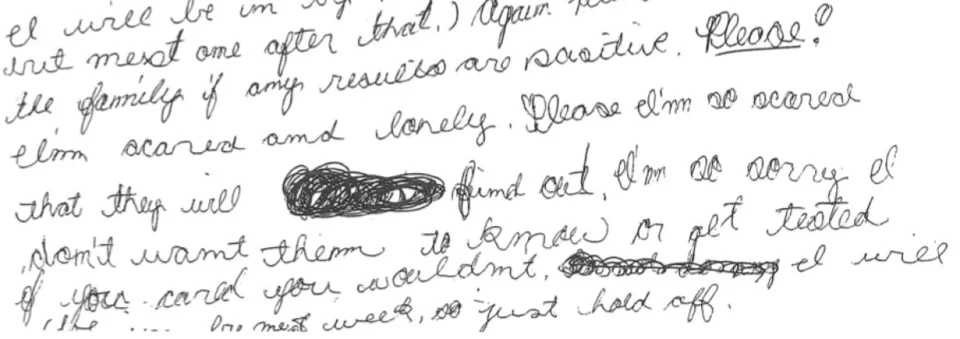 I will be in
but next one after that.) Again
the family if any results are positive. Please!
I'm scared and lonely. Please I'm so scared
that they will find out. I'm so sorry I
don't want them to know or get tested
if you cared you wouldn't. I will
next week, so just hold off.